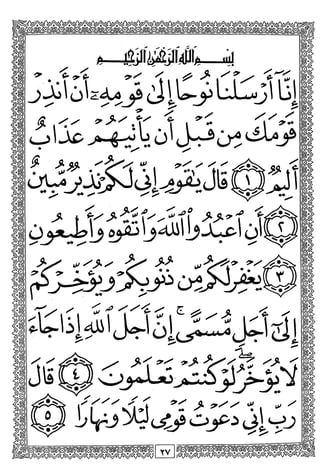 بِسْمِ اللَّهِ الرَّحْمَٰنِ الرَّحِيمِ
إِنَّآ أَرْسَلْنَا نُوحًا إِلَىٰ قَوْمِهِۦٓ أَنْ أَنذِرْ
قَوْمَكَ مِن قَبْلِ أَن يَأْتِيَهُمْ عَذَابٌ
أَلِيمٌ ١ قَالَ يَٰقَوْمِ إِنِّى لَكُمْ نَذِيرٌ مُّبِينٌ
٢ أَنِ ٱعْبُدُوا۟ ٱللَّهَ وَٱتَّقُوهُ وَأَطِيعُونِ
٣ يَغْفِرْ لَكُم مِّن ذُنُوبِكُمْ وَيُؤَخِّرْكُمْ
إِلَىٰٓ أَجَلٍ مُّسَمًّى ۚ إِنَّ أَجَلَ ٱللَّهِ إِذَا جَآءَ
لَا يُؤَخَّرُ ۖ لَوْ كُنتُمْ تَعْلَمُونَ ٤ قَالَ
رَبِّ إِنِّى دَعَوْتُ قَوْمِى لَيْلًا وَنَهَارًا ٥
٢٧